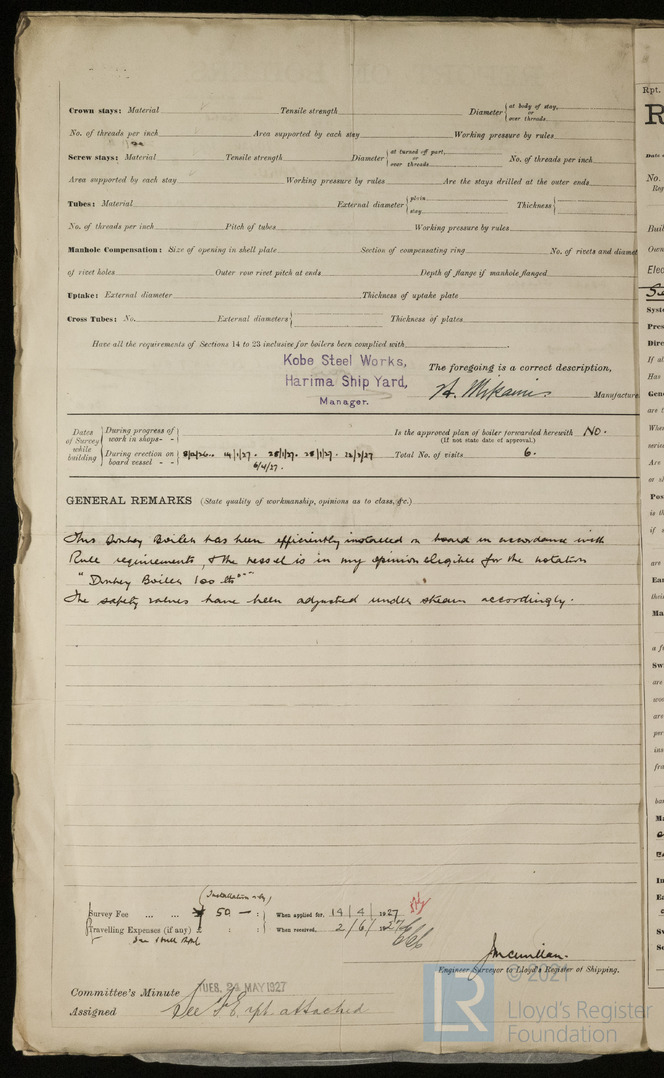 Crown stays: Material Tensile strength Diameter { at body of stay, or over threads
No. of threads per inch Area supported by each stay Working pressure by rules
Screw stays: Material Tensile strength Diameter { at turned off part, or over threads No. of threads per inch
Area supported by each stay Working pressure by rules Are the stays drilled at the outer ends
Tubes: Material External diameter { plain stay Thickness {
No. of threads per inch Pitch of tubes Working pressure by rules
Manhole Compensation: Size of opening in shell plate Section of compensating ring No. of rivets and diamet
of rivet holes Outer row rivet pitch at ends Depth of flange if manhole flanged
Uptake: External diameter Thickness of uptake plate
Cross Tubes: No. External diameters { Thickness of plates
Have all the requirements of Sections 14 to 23 inclusive for boilers been complied with
Kobe Steel Works,
Harima Ship Yard,
Manager.
The foregoing is a correct description,
H. Mikami Manufacture
Dates of Survey while building
During progress of work in shops - -
During erection on board vessel - -
14/1/27. 28/1/27. 6/4/27.
Is the approved plan of boiler forwarded herewith No.
(If not state date of approval.)
Total No. of visits 6.
GENERAL REMARKS (State quality of workmanship, opinions as to class, &c.)
This Donkey Boiler has been efficiently installed on board in accordance with
Rule requirements, & the vessel is in my opinion eligible for the notation
"Donkey Boiler 100 lbs"
The safety valves have been adjusted under steam accordingly.
(Installation only)
Survey Fee ... ... ¥ 50 — : When applied for, 14/4/1927
Travelling Expenses (if any) £ : : When received, 2/6/1927
J McMillan.
Engineer Surveyor to Lloyd's Register of Shipping.
Committee's Minute TUES. 24 MAY 1927
Assigned See F.E. rpt. attached
© 2021
LR
Lloyd's Register
Foundation
Rpt.
No.